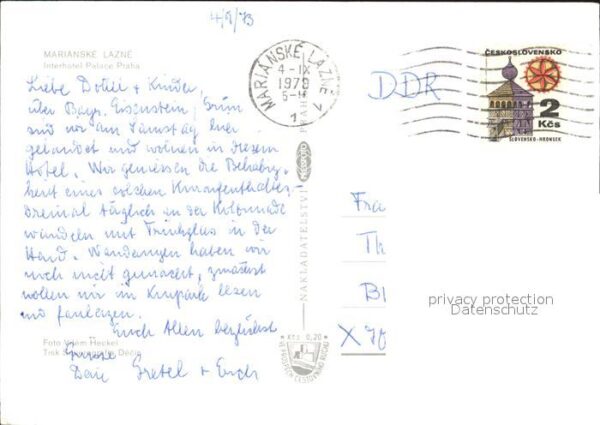 4/9/73
MARIÁNSKÉ LÁZNĚ
Interhotel Palace Praha
Liebe Dotti + Kinder,
über Bayr. Eisenstein, Brünn
sind wir am Samstag hier
gelandet und wohnen in diesem
Hotel. Wir geniessen die
eines solchen Kuraufenthaltes,
dreimal täglich an der Kolonnade
wandeln mit Trinkglas in der
Hand. Wanderungen haben wir
noch nicht gemacht, zunächst
wollen wir im Kurpark lesen
und faulenzen.
Euch Allen herzlichst
Grüsse
Gretel + Erich
Foto Vilém Heckel
Tisk Děčín
MARIÁNSKÉ LÁZNĚ 1
4.-IX
1979
5-
1
PRAHA
NAKLADATELSTVÍ
Kčs 0,20
ČESKOSLOVENSKO
2
Kčs
SLOVENSKO-HRONSEK
DDR
Fra
Th
Bl
X 70
privacy protection
Datenschutz